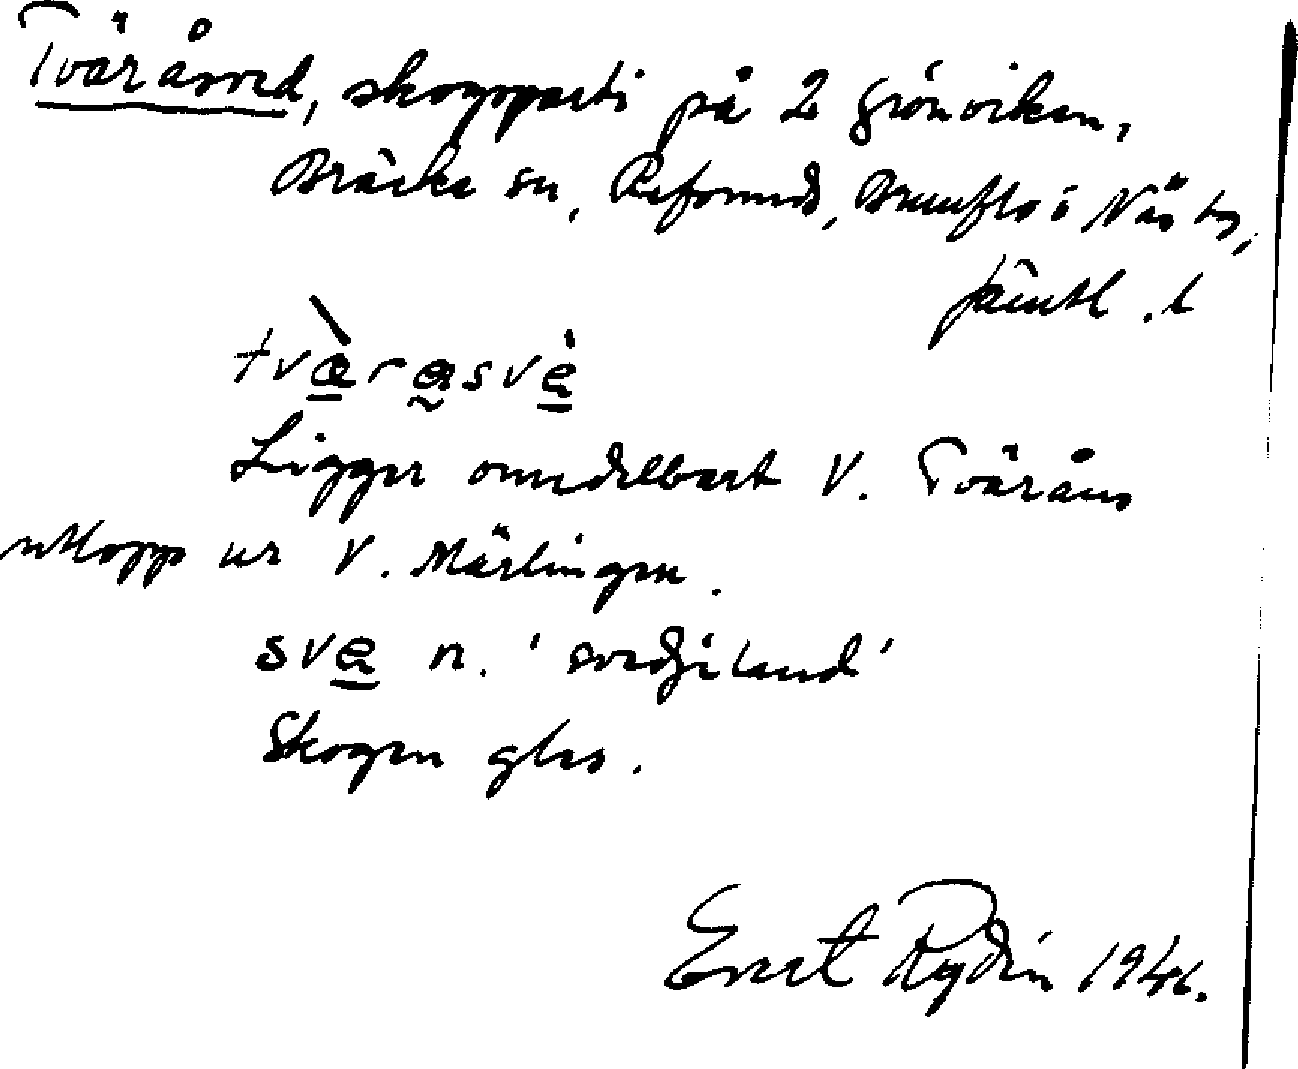 Tväråsved, skogsparti på 2 Grönviken,
Bräcke sn, Refsunds, Brunflo i Näs tg,
Jämtl. l
tværasvè
Ligger omedelbart V. Tväråns
utlopp ur V. Märlingen.
sve n. 'svedjeland'
Skogen gles.
Ernst Rydin 1946.